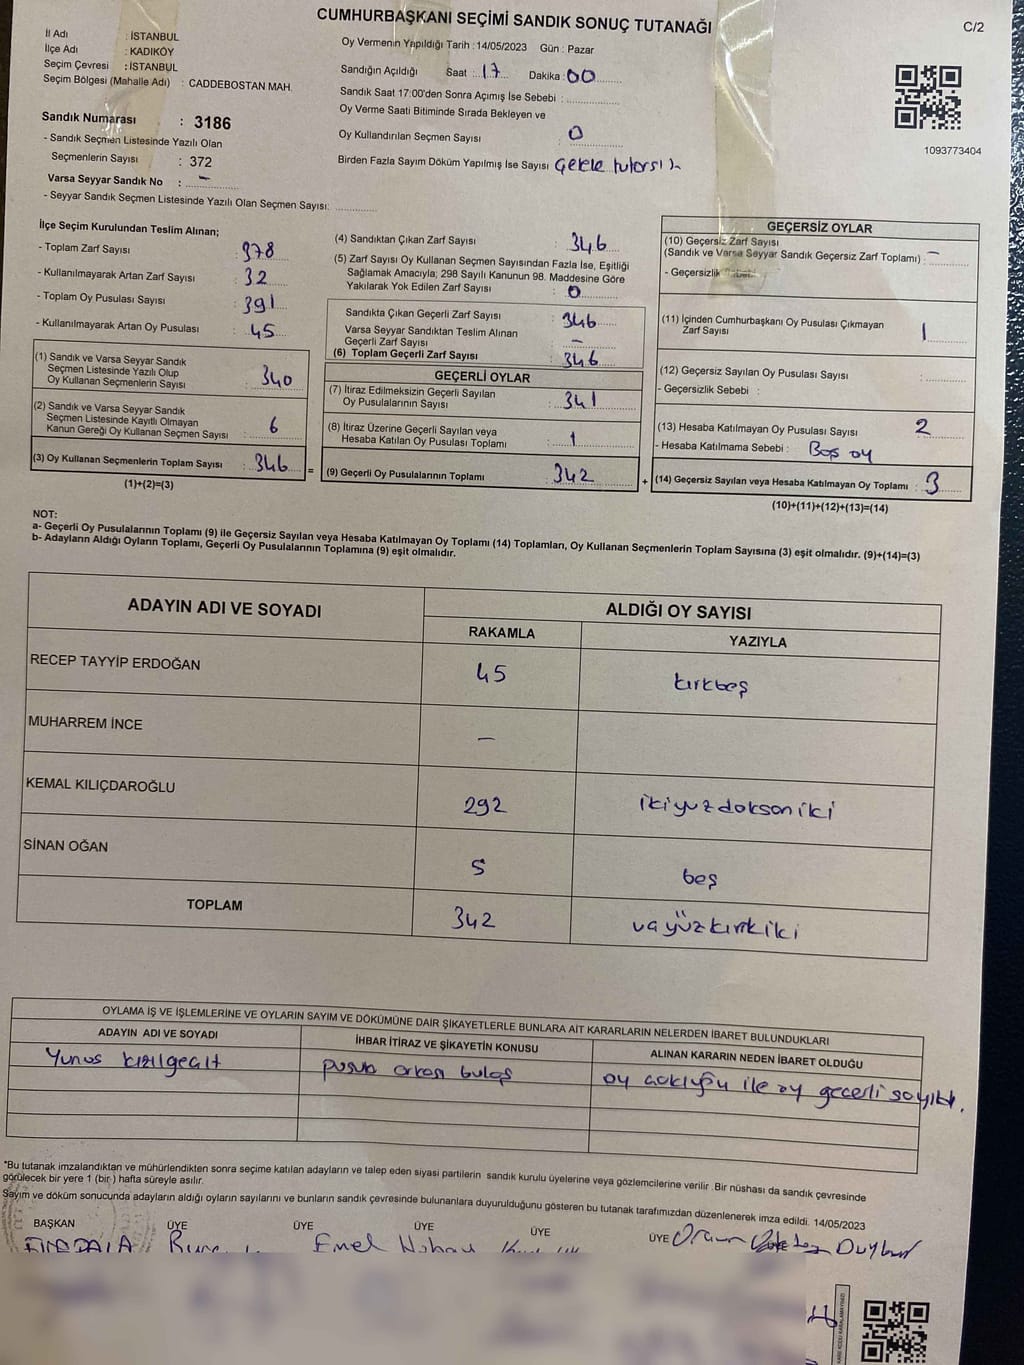 CUMHURBAŞKANI SEÇİMİ SANDIK SONUÇ TUTANAĞI
C/2
İl Adı : İSTANBUL
İlçe Adı : KADIKÖY
Seçim Çevresi : İSTANBUL
Seçim Bölgesi (Mahalle Adı) : CADDEBOSTAN MAH.
Sandık Numarası : 3186
- Sandık Seçmen Listesinde Yazılı Olan
Seçmenlerin Sayısı : 372
Varsa Seyyar Sandık No : -
- Seyyar Sandık Seçmen Listesinde Yazılı Olan Seçmen Sayısı:
Oy Vermenin Yapıldığı Tarih : 14/05/2023 Gün : Pazar
Sandığın Açıldığı Saat : 17 Dakika : 00
Sandık Saat 17:00'den Sonra Açımış İse Sebebi :
Oy Verme Saati Bitiminde Sırada Bekleyen ve
Oy Kullandırılan Seçmen Sayısı : 0
Birden Fazla Sayım Döküm Yapılmış İse Sayısı
1093773404
İlçe Seçim Kurulundan Teslim Alınan;
- Toplam Zarf Sayısı : 378
- Kullanılmayarak Artan Zarf Sayısı : 32
- Toplam Oy Pusulası Sayısı : 391
- Kullanılmayarak Artan Oy Pusulası : 45
(1) Sandık ve Varsa Seyyar Sandık
Seçmen Listesinde Yazılı Olup
Oy Kullanan Seçmenlerin Sayısı : 340
(2) Sandık ve Varsa Seyyar Sandık
Seçmen Listesinde Kayıtlı Olmayan
Kanun Gereği Oy Kullanan Seçmen Sayısı : 6
(3) Oy Kullanan Seçmenlerin Toplam Sayısı : 346 =
(1)+(2)=(3)
(4) Sandıktan Çıkan Zarf Sayısı : 346
(5) Zarf Sayısı Oy Kullanan Seçmen Sayısından Fazla İse, Eşitliği
Sağlamak Amacıyla; 298 Sayılı Kanunun 98. Maddesine Göre
Yakılarak Yok Edilen Zarf Sayısı : 0
Sandıkta Çıkan Geçerli Zarf Sayısı : 346
Varsa Seyyar Sandıktan Teslim Alınan
Geçerli Zarf Sayısı : -
(6) Toplam Geçerli Zarf Sayısı : 346
GEÇERLİ OYLAR
(7) İtiraz Edilmeksizin Geçerli Sayılan
Oy Pusulalarının Sayısı : 341
(8) İtiraz Üzerine Geçerli Sayılan veya
Hesaba Katılan Oy Pusulası Toplamı : 1
(9) Geçerli Oy Pusulalarının Toplamı : 342 +
GEÇERSİZ OYLAR
(10) Geçersiz Zarf Sayısı
(Sandık ve Varsa Seyyar Sandık Geçersiz Zarf Toplamı) : -
- Geçersizlik
(11) İçinden Cumhurbaşkanı Oy Pusulası Çıkmayan
Zarf Sayısı : 1
(12) Geçersiz Sayılan Oy Pusulası Sayısı :
- Geçersizlik Sebebi :
(13) Hesaba Katılmayan Oy Pusulası Sayısı : 2
- Hesaba Katılmama Sebebi : Boş oy
(14) Geçersiz Sayılan veya Hesaba Katılmayan Oy Toplamı : 3
(10)+(11)+(12)+(13)=(14)
NOT:
a- Geçerli Oy Pusulalarının Toplamı (9) ile Geçersiz Sayılan veya Hesaba Katılmayan Oy Toplamı (14) Toplamları, Oy Kullanan Seçmenlerin Toplam Sayısına (3) eşit olmalıdır. (9)+(14)=(3)
b- Adayların Aldığı Oyların Toplamı, Geçerli Oy Pusulalarının Toplamına (9) eşit olmalıdır.
ADAYIN ADI VE SOYADI
ALDIĞI OY SAYISI
RAKAMLA YAZIYLA
RECEP TAYYİP ERDOĞAN 45 kırkbeş
MUHARREM İNCE -
KEMAL KILIÇDAROĞLU 292 ikiyuzdoksaniki
SİNAN OĞAN 5 beş
TOPLAM 342
OYLAMA İŞ VE İŞLEMLERİNE VE OYLARIN SAYIM VE DÖKÜMÜNE DAİR ŞİKAYETLERLE BUNLARA AİT KARARLARIN NELERDEN İBARET BULUNDUKLARI
ADAYIN ADI VE SOYADI İHBAR İTİRAZ VE ŞİKAYETİN KONUSU ALINAN KARARIN NEDEN İBARET OLDUĞU
Yunus
oy ile oy geçerli sayıldı.
*Bu tutanak imzalandıktan ve mühürlendikten sonra seçime katılan adayların ve talep eden siyasi partilerin sandık kurulu üyelerine veya gözlemcilerine verilir. Bir nüshası da sandık çevresinde
görülecek bir yere 1 (bir ) hafta süreyle asılır.
Sayım ve döküm sonucunda adayların aldığı oyların sayılarını ve bunların sandık çevresinde bulunanlara duyurulduğunu gösteren bu tutanak tarafımızdan düzenlenerek imza edildi. 14/05/2023
BAŞKAN ÜYE ÜYE ÜYE ÜYE ÜYE
Emel